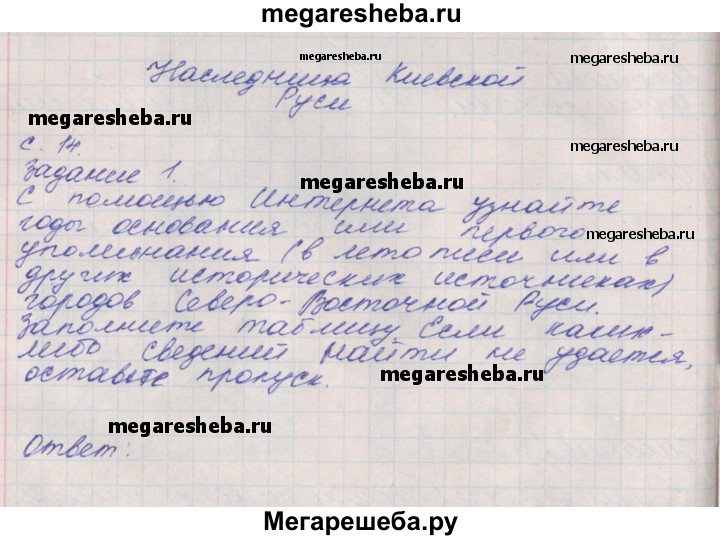 megaresheba.ru
megaresheba.ru
megaresheba.ru
Наследница Киевской
Руси
megaresheba.ru
с. 14.
Задание 1.
megaresheba.ru
С помощью Интернета узнайте
годы основания или первого
megaresheba.ru
упоминания (в летописи или в
других исторических источниках)
городов Северо-Восточной Руси.
Заполните таблицу. Если каких-
либо сведений найти не удается,
оставьте пропуск.
megaresheba.ru
megaresheba.ru
Ответ:
Мегарешеба.ру